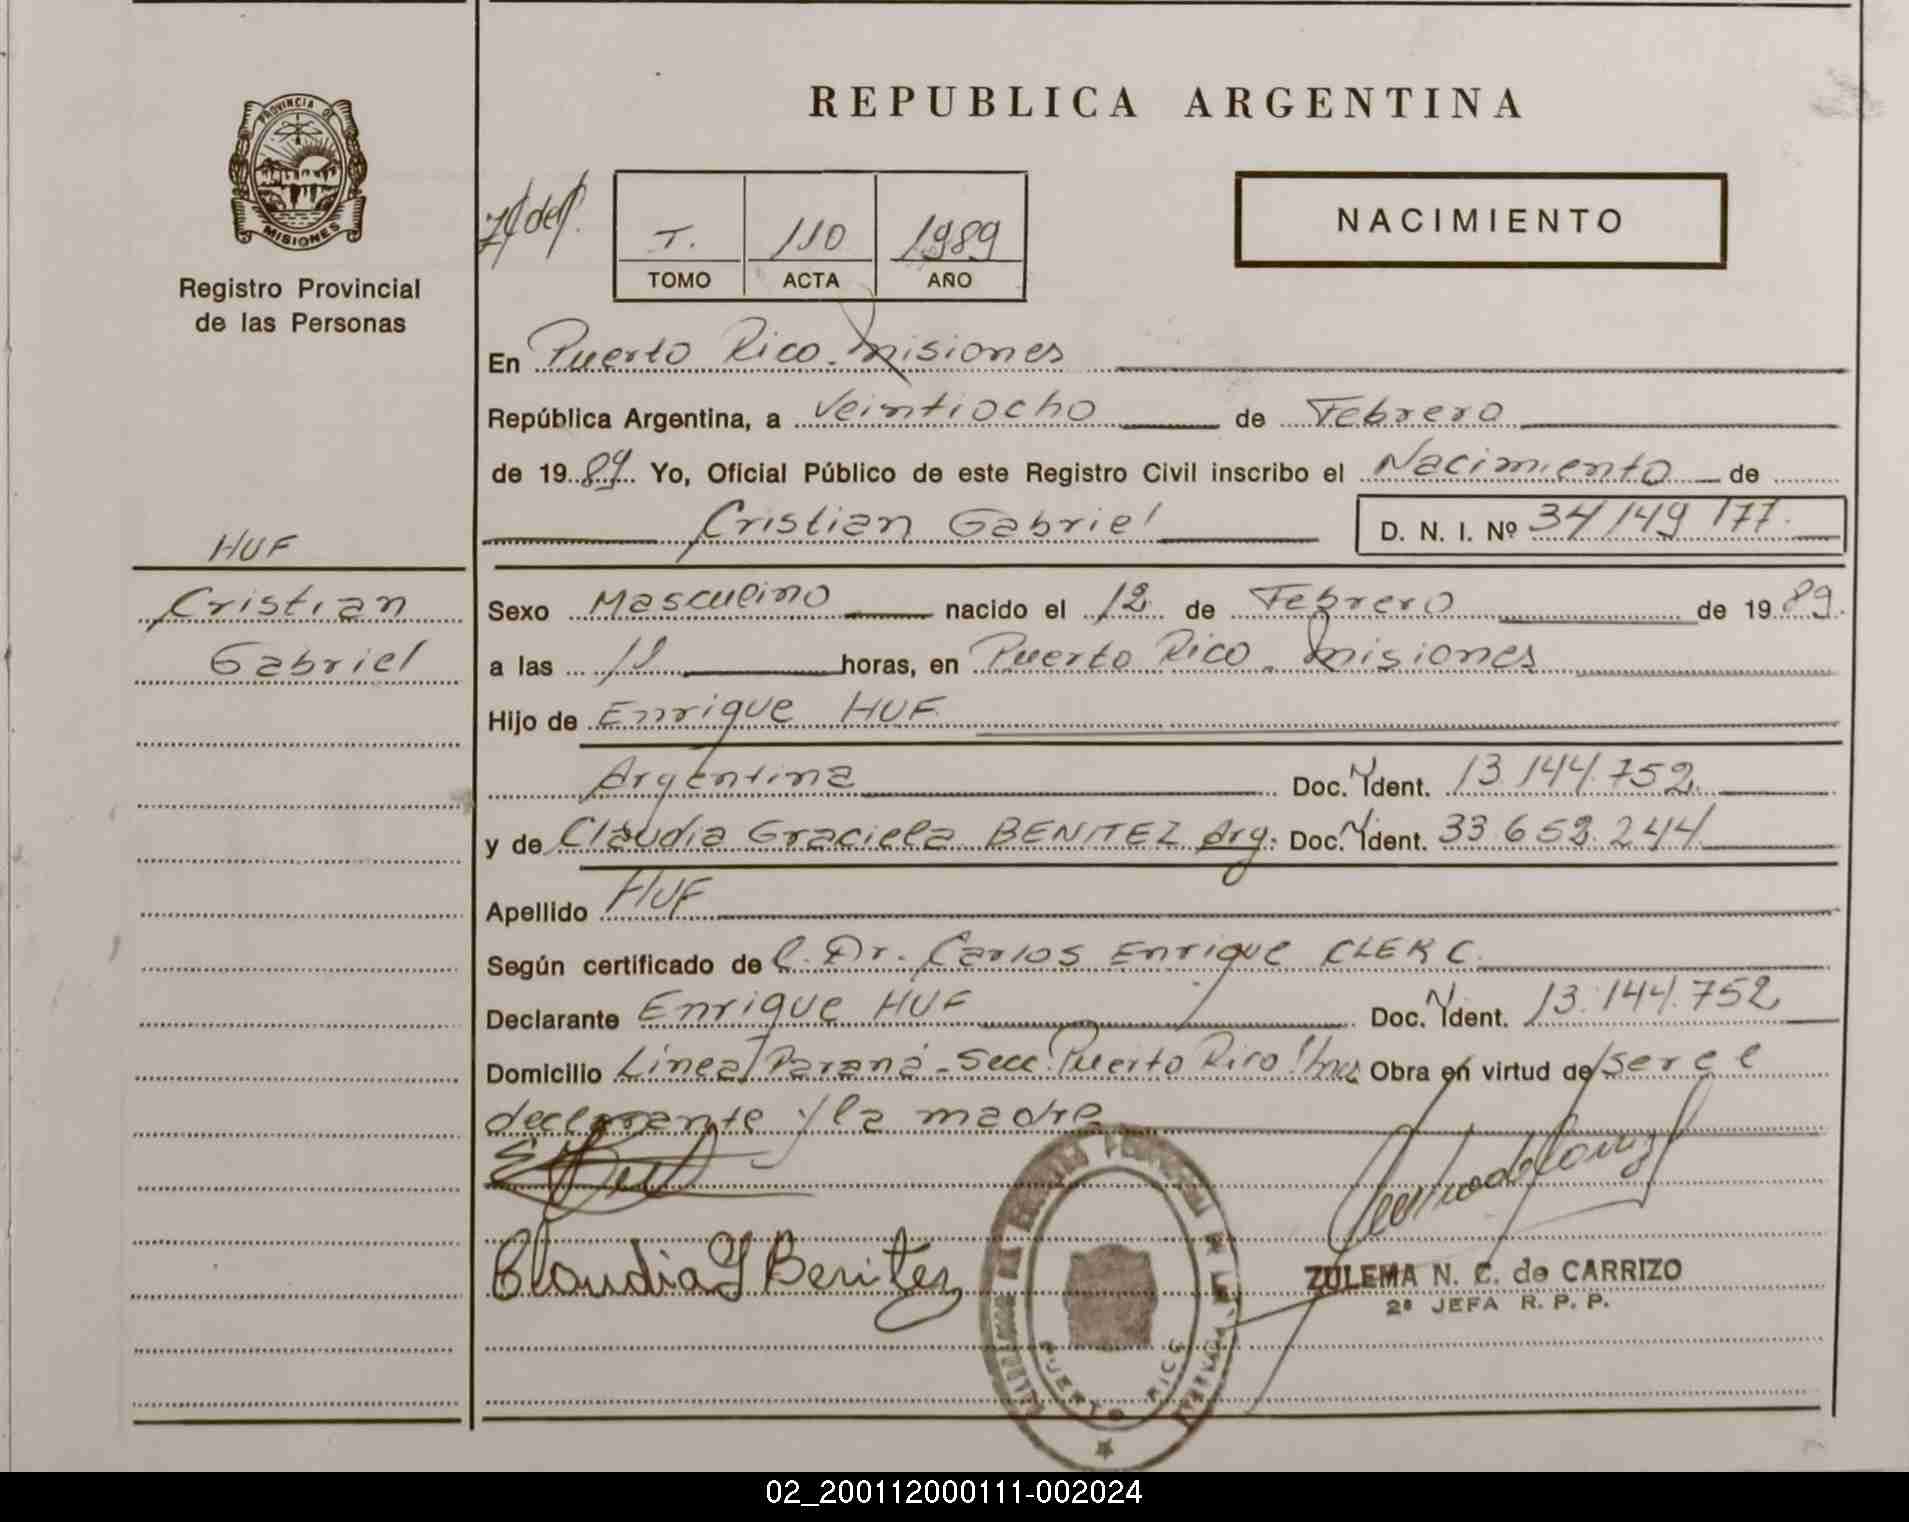 REPUBLICA ARGENTINA
PROVINCIA DE
MISIONES
Registro Provincial
de las Personas
T. 110 1989
TOMO ACTA AÑO
NACIMIENTO
En Puerto Rico. Misiones
República Argentina, a Veintiocho de Febrero
de 1989 Yo, Oficial Público de este Registro Civil inscribo el Nacimiento de
Cristian Gabriel D. N. I. Nº 34149177.
HUF
Cristian
Gabriel
Sexo Masculino nacido el 12 de Febrero de 1989.
a las 11 horas, en Puerto Rico. Misiones
Hijo de Enrique HUF
Argentina Doc. N Ident. 13.144.752.
y de Claudia Graciela BENITEZ Arg. Doc. N Ident. 33.652.244
Apellido HUF
Según certificado de l. Dr. Carlos Enrique CLERC.
Declarante Enrique HUF Doc. N Ident. 13.144.752
Domicilio Línea Paraná - Secc. Puerto Rico Mnes Obra en virtud de ser el
declarante y la madre
Claudia G Benitez
PUERTO RICO
ZULEMA N. C. de CARRIZO
2ª JEFA R. P. P.
02_200112000111-002024